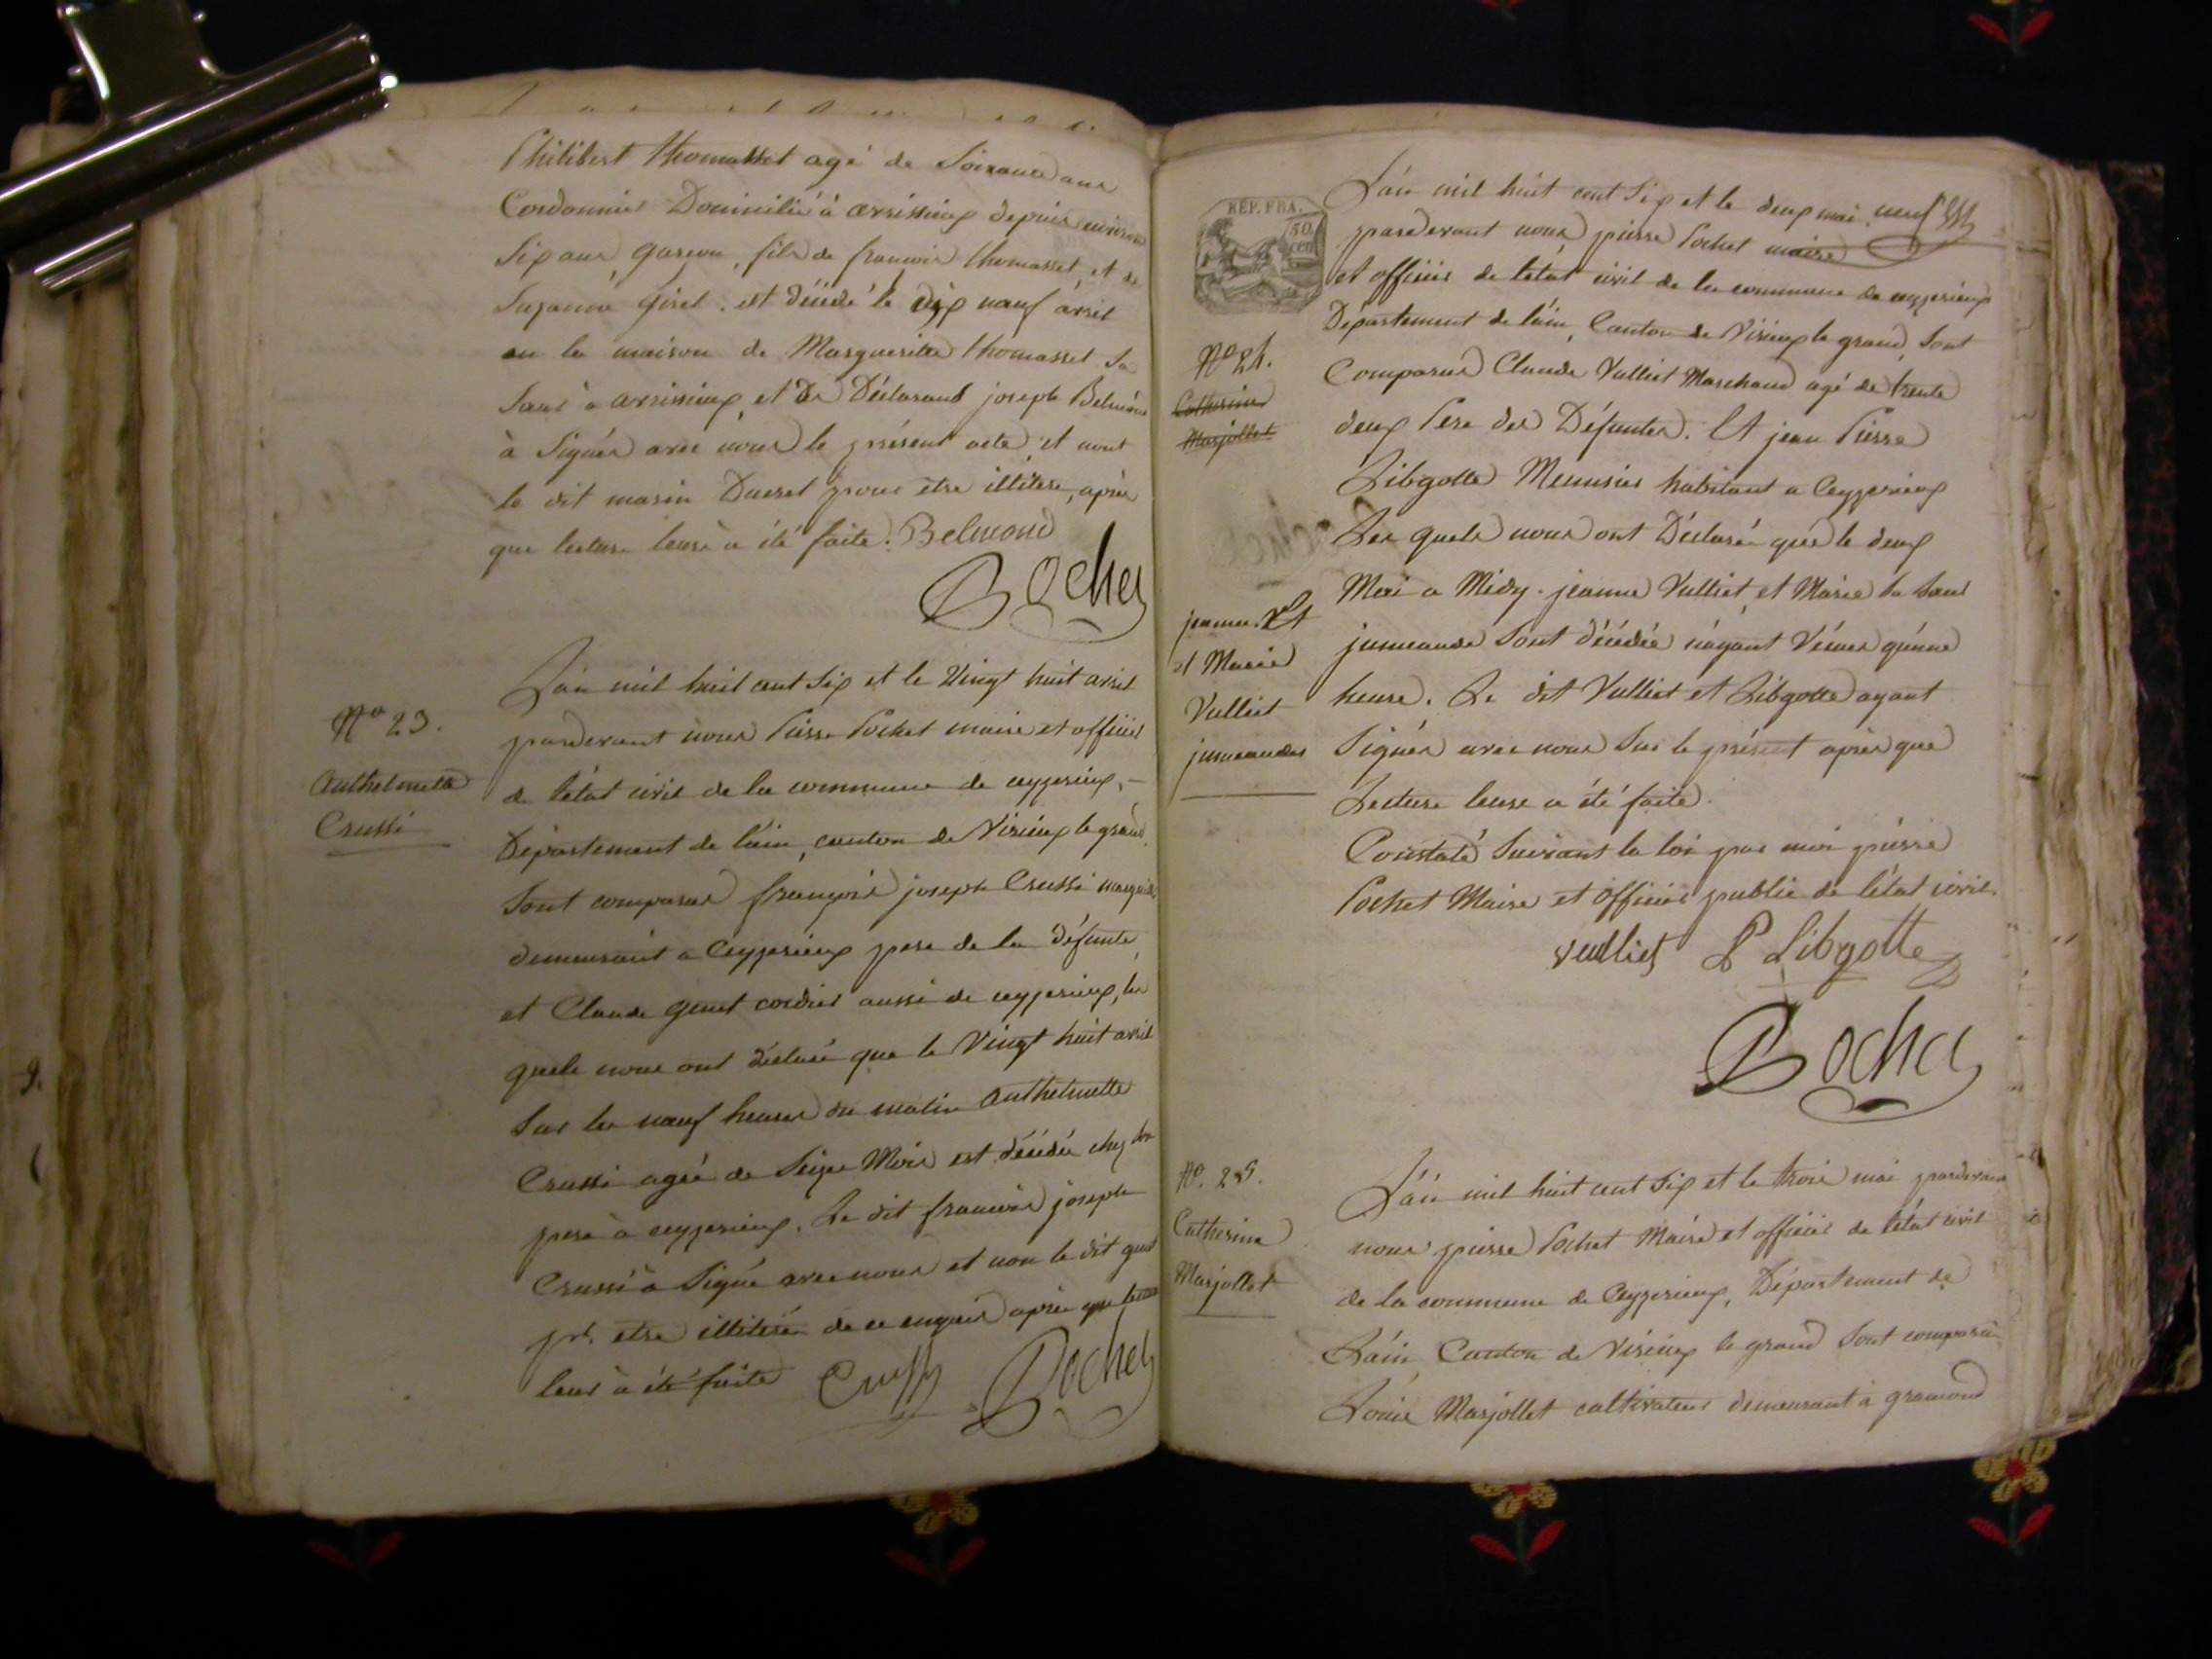 Philibert thomasset agé de Soixante ans
Cordonnier Domicilié à arvissieux depuis environ
Six ans, garçon, fils de françois thomasset et de
Suzanne giret. est décédé le dix neuf avril
en la maison de Marguerite thomasset Sa
Sœur à arvissieux, et De Déclarans joseph Belmond
à Signés avec nous le présent acte et nont
le dit marin Ducret pour être illitere, après
que lecture leure à été faite. Belmond
Pochet
N° 23.
Anthelmette
Crussi
L'an mil huit cent Six et le Vingt huit avril
pardevant nous Pierre Pochet maire et officier
de l'état civil de la commune de ceyzerieux, -
Département de l'ain, canton de Virieux le grand
Sont comparus françois joseph Crussi
demeurant a Ceyzerieux pere de la défunte,
et Claude genet cordier aussi de ceyzerieux, les
quels nous ont déclaré que le Vingt huit avril
Sur les neuf heures du matin Anthelmette
Crussi agée de Seize Mois est décédée chez son
pere à ceyzerieux. Le dit francois joseph
Crussi à Signé avec nous et non le dit genet
pr. etre illiteré de ce enquis après que lecture
leur à été faite Crussy Pochet
REP. FRA.
50
cen
L'an mil huit cent Six et le deux mai neuf
pardevant nous pierre Pochet maire
et officier de l'état civil de la commune de ceyzerieux
Département de l'ain, Canton de Virieux le grand, Sont
N° 24.
Catherine
Marjollet
Comparus Claude Vulliet Marchand agé de trente
deux Pere des Défuntes. Et jean Pierre
Libgotte Menusier habitant a Ceyzerieux
Les quels nous ont Déclaré que le deux
Mai a Midy. jeanne Vulliet, et Marie Sa Sœur
jeanne Vlt
et Marie
Vulliet
jumeaudes
jumeaude Sont décédée n'ayant Vécues qu'une
heure. Le dit Vulliet et Libgotte ayant
Signés avec nous Sur le présent après que
Lecture leure a été faite.
Constaté Suivant la loi par moi pierre
Pochet Maire et Officier public de l'état civil.
vulliet P Libgotte
Pochet
N°. 25.
Catherine
Marjollet
L'an mil huit cent Six et le trois mai pardevant
nous pierre Pochet Maire et officier de l'état civil
de la commune de Ceyzerieux, Département de
L'ain Canton de Virieux le grand Sont comparus
Louis Marjollet cultivateur demeurant à gramond